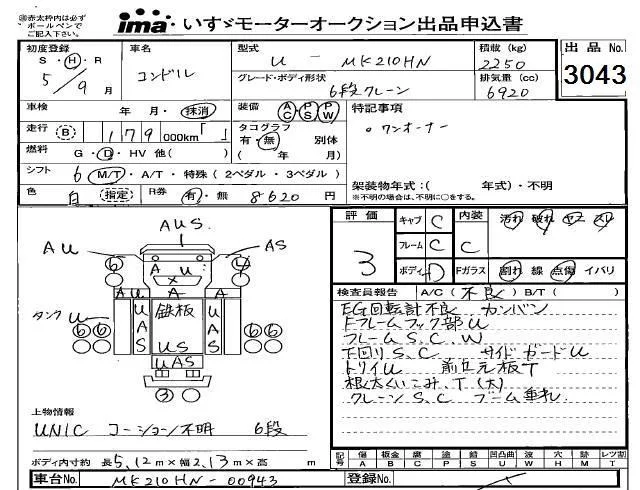 ㊟赤太枠内は必ず
ボールペンで
ご記入下さい。
ima いすゞモーターオークション出品申込書
初度登録 S・H・R 5/9月
車名 コンドル
型式 U-MK210HN
グレード・ボディ形状 6段クレーン
積載(kg) 2250
排気量(cc) 6920
出品No. 3043
車検 年・月・抹消
装備 AC PS PW
特記事項
。ワンオーナー
走行 B 179000km「 」
タコグラフ 有・無 別体
( 年 月)
燃料 G・D・HV 他( )
シフト 6 M/T・A/T・特殊(2ペダル・3ペダル)
架装物年式:( 年式)・不明
※不明の場合は、不明に○をする。
色 白 (指定) R券 有・無 8620円
評価 3
キャブ C
フレーム C
ボディ D
内装 C 汚れ 破れ
Fガラス 割れ 線 点傷 イバリ
AUS.
AU
AS
6
A U
A
タンク U
鉄板
UAS
US
UAS
3
検査員報告 A/C(不良) B/T( )
EG回転計不良 カンバン
Fフレームフック部U
フレームS.C.W
下回りS.C サイドガードU
トリイU 前立え板T
根太くいこみ.T(大)
クレーンS.C ブーム垂れ
上物情報
UNIC コーション不明 6段
ボディ内寸約 長5.12m×幅2.13m×高 m
記号 傷A 板金B 腐C 塗P 錆S 凹凸曲U 波W 穴H 跡M レツ割T
車台No. MK210HN-00943
登録No.